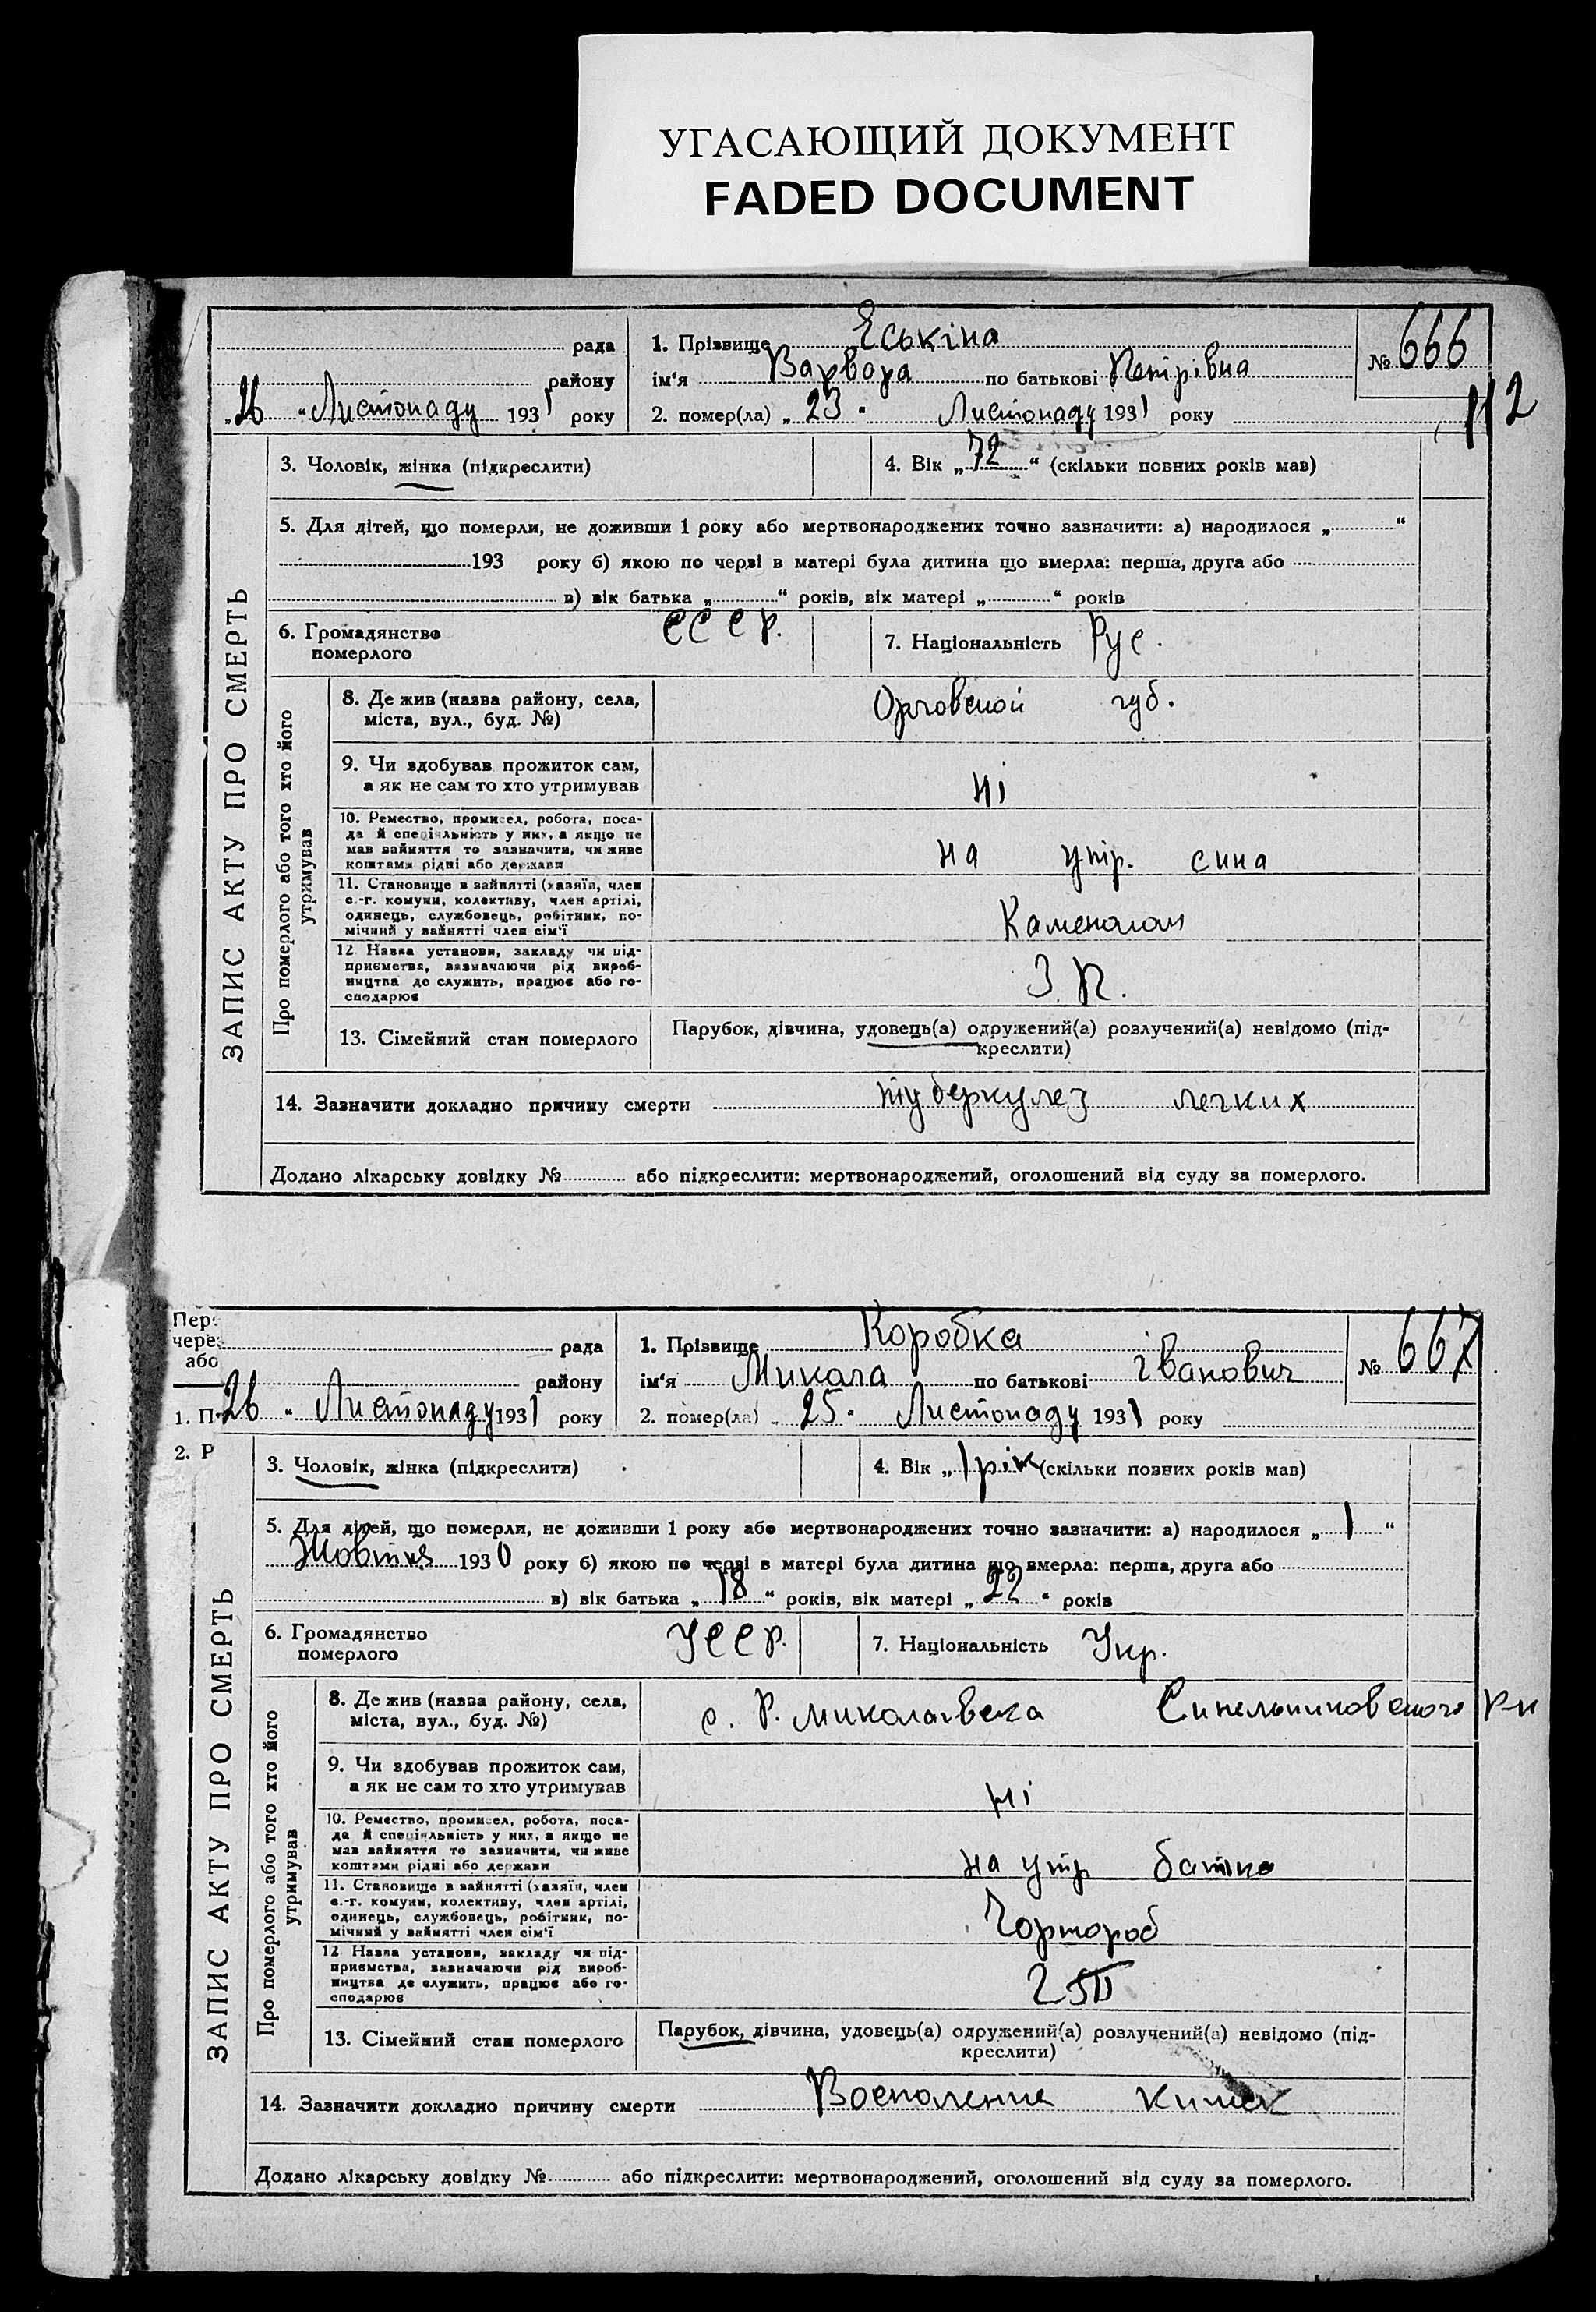 УГАСАЮЩИЙ ДОКУМЕНТ
FADED DOCUMENT
рада
району
„26 “ Листопаду 1931 року
1. Прізвище Еськіна
ім‘я Варвара по батькові Петрівна
2. помер(ла) „ 23 “ Листопаду 1931 року
№ 666
112
ЗАПИС АКТУ ПРО СМЕРТЬ
3. Чоловік, жінка (підкреслити)
4. Вік „ 72 “ (скільки повних років мав)
5. Для дітей, що померли, не доживши 1 року або мертвонароджених точно зазначити: а) народилося „ “
193 року б) якою по черзі в матері була дитина що вмерла: перша, друга або
в) вік батька „ “ років, вік матері „ “ років
6. Громадянство померлого СССР.
7. Національність Рус.
Про померлого або того хто його утримував
8. Де жив (назва району, села,
міста, вул., буд. №)
Орловской губ.
9. Чи здобував прожиток сам,
а як не сам то хто утримував
Ні
10. Ремество, промисел, робота, поса-
да й спеціяльність у них, а якщо не
мав зайняття то зазначити, чи живе
коштами рідні або держави
на утр. сина
11. Становище в зайнятті (хазяїн, член
с.-г. комуни, колективу, член артілі,
одинець, службовець, робітник, по-
мічний у зайнятті член сім‘ї
Каменолом
12 Назва установи, закладу чи під-
приємства, зазначаючи рід вироб-
ництва де служить, працює або го-
сподарює
З. П.
13. Сімейний стан померлого
Парубок, дівчина, удовець(а) одружений(а) розлучений(а) невідомо (під-
креслити)
14. Зазначити докладно причину смерти туберкулез легких
Додано лікарську довідку № або підкреслити: мертвонароджений, оголошений від суду за померлого.
Пер
чере
або
1. П
2. Р
рада
району
26 “ Листопаду 1931 року
1. Прізвище Коробка
ім‘я Микола по батькові Іванович
2. помер(ла) „ 25 “ Листопаду 1931 року
№ 667
ЗАПИС АКТУ ПРО СМЕРТЬ
3. Чоловік, жінка (підкреслити)
4. Вік „ 1 рік (скільки повних років мав)
5. Для дітей, що померли, не доживши 1 року або мертвонароджених точно зазначити: а) народилося „ 1 “
Жовтня 1930 року б) якою по черзі в матері була дитина що вмерла: перша, друга або
в) вік батька „ 18 “ років, вік матері „ 22 “ років
6. Громадянство померлого УССР.
7. Національність Укр.
Про померлого або того хто його утримував
8. Де жив (назва району, села,
міста, вул., буд. №)
с. Р. Миколаевка Синельниковского Р-н
9. Чи здобував прожиток сам,
а як не сам то хто утримував
Ні
10. Ремество, промисел, робота, поса-
да й спеціяльність у них, а якщо не
мав зайняття то зазначити, чи живе
коштами рідні або держави
на утр батька
11. Становище в зайнятті (хазяїн, член
с.-г. комуни, колективу, член артілі,
одинець, службовець, робітник, по-
мічний у зайнятті член сім‘ї
Чорнороб
12 Назва установи, закладу чи під-
приємства, зазначаючи рід вироб-
ництва де служить, працює або го-
сподарює
13. Сімейний стан померлого
Парубок, дівчина, удовець(а) одружений(а) розлучений(а) невідомо (під-
креслити)
14. Зазначити докладно причину смерти Восполение кишек
Додано лікарську довідку № або підкреслити: мертвонароджений, оголошений від суду за померлого.